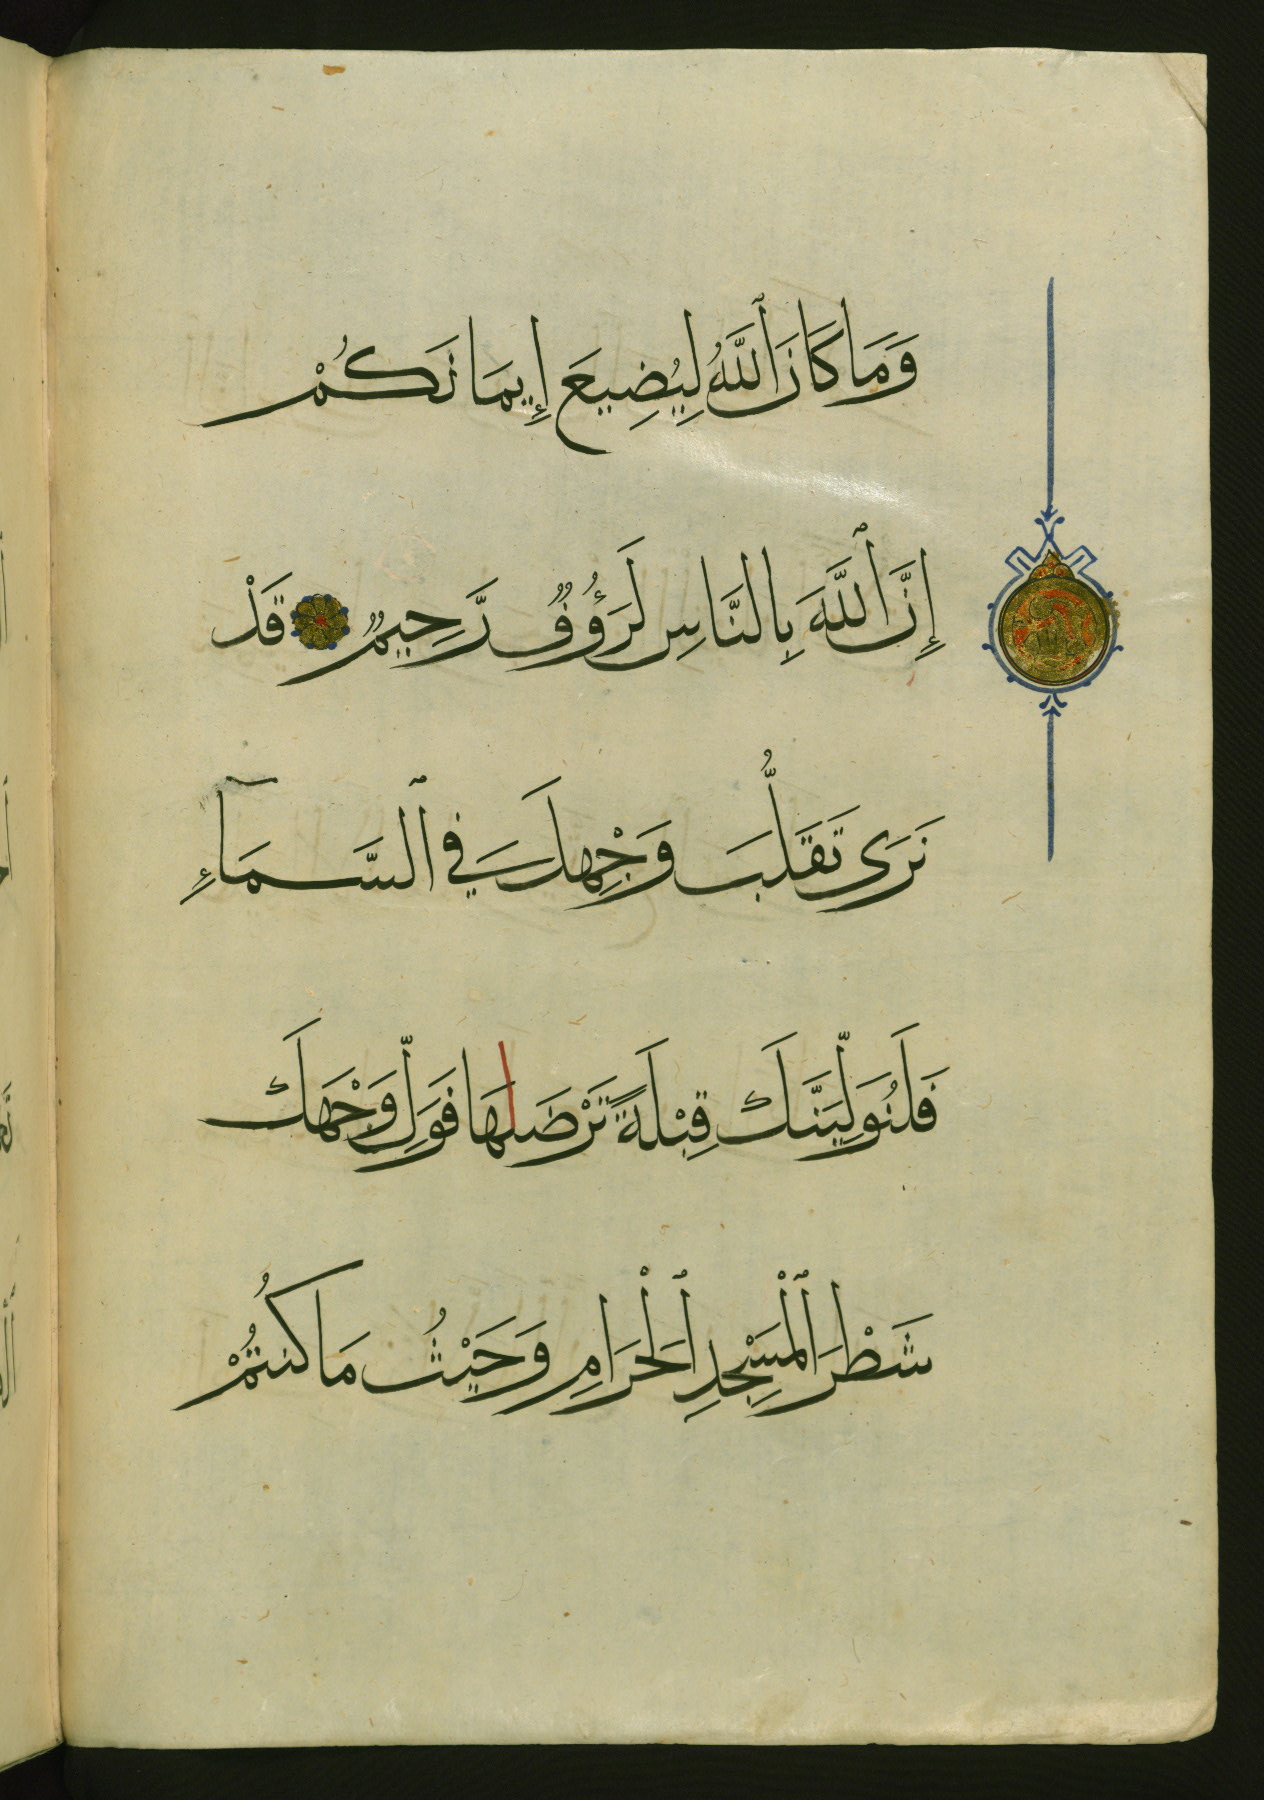 وَمَا كَانَ ٱللَّهُ لِيُضِيعَ إِيمَانَكُمْ
إِنَّ ٱللَّهَ بِالنَّاسِ لَرَؤُفٌ رَّحِيمٌ قَدْ
نَرَى تَقَلُّبَ وَجْهِكَ فِي ٱلسَّمَآءِ
فَلَنُوَلِّيَنَّكَ قِبْلَةً تَرْضَىٰهَا فَوَلِّ وَجْهَكَ
شَطْرَ ٱلْمَسْجِدِ ٱلْحَرَامِ وَحَيْثُ مَا كُنتُمْ